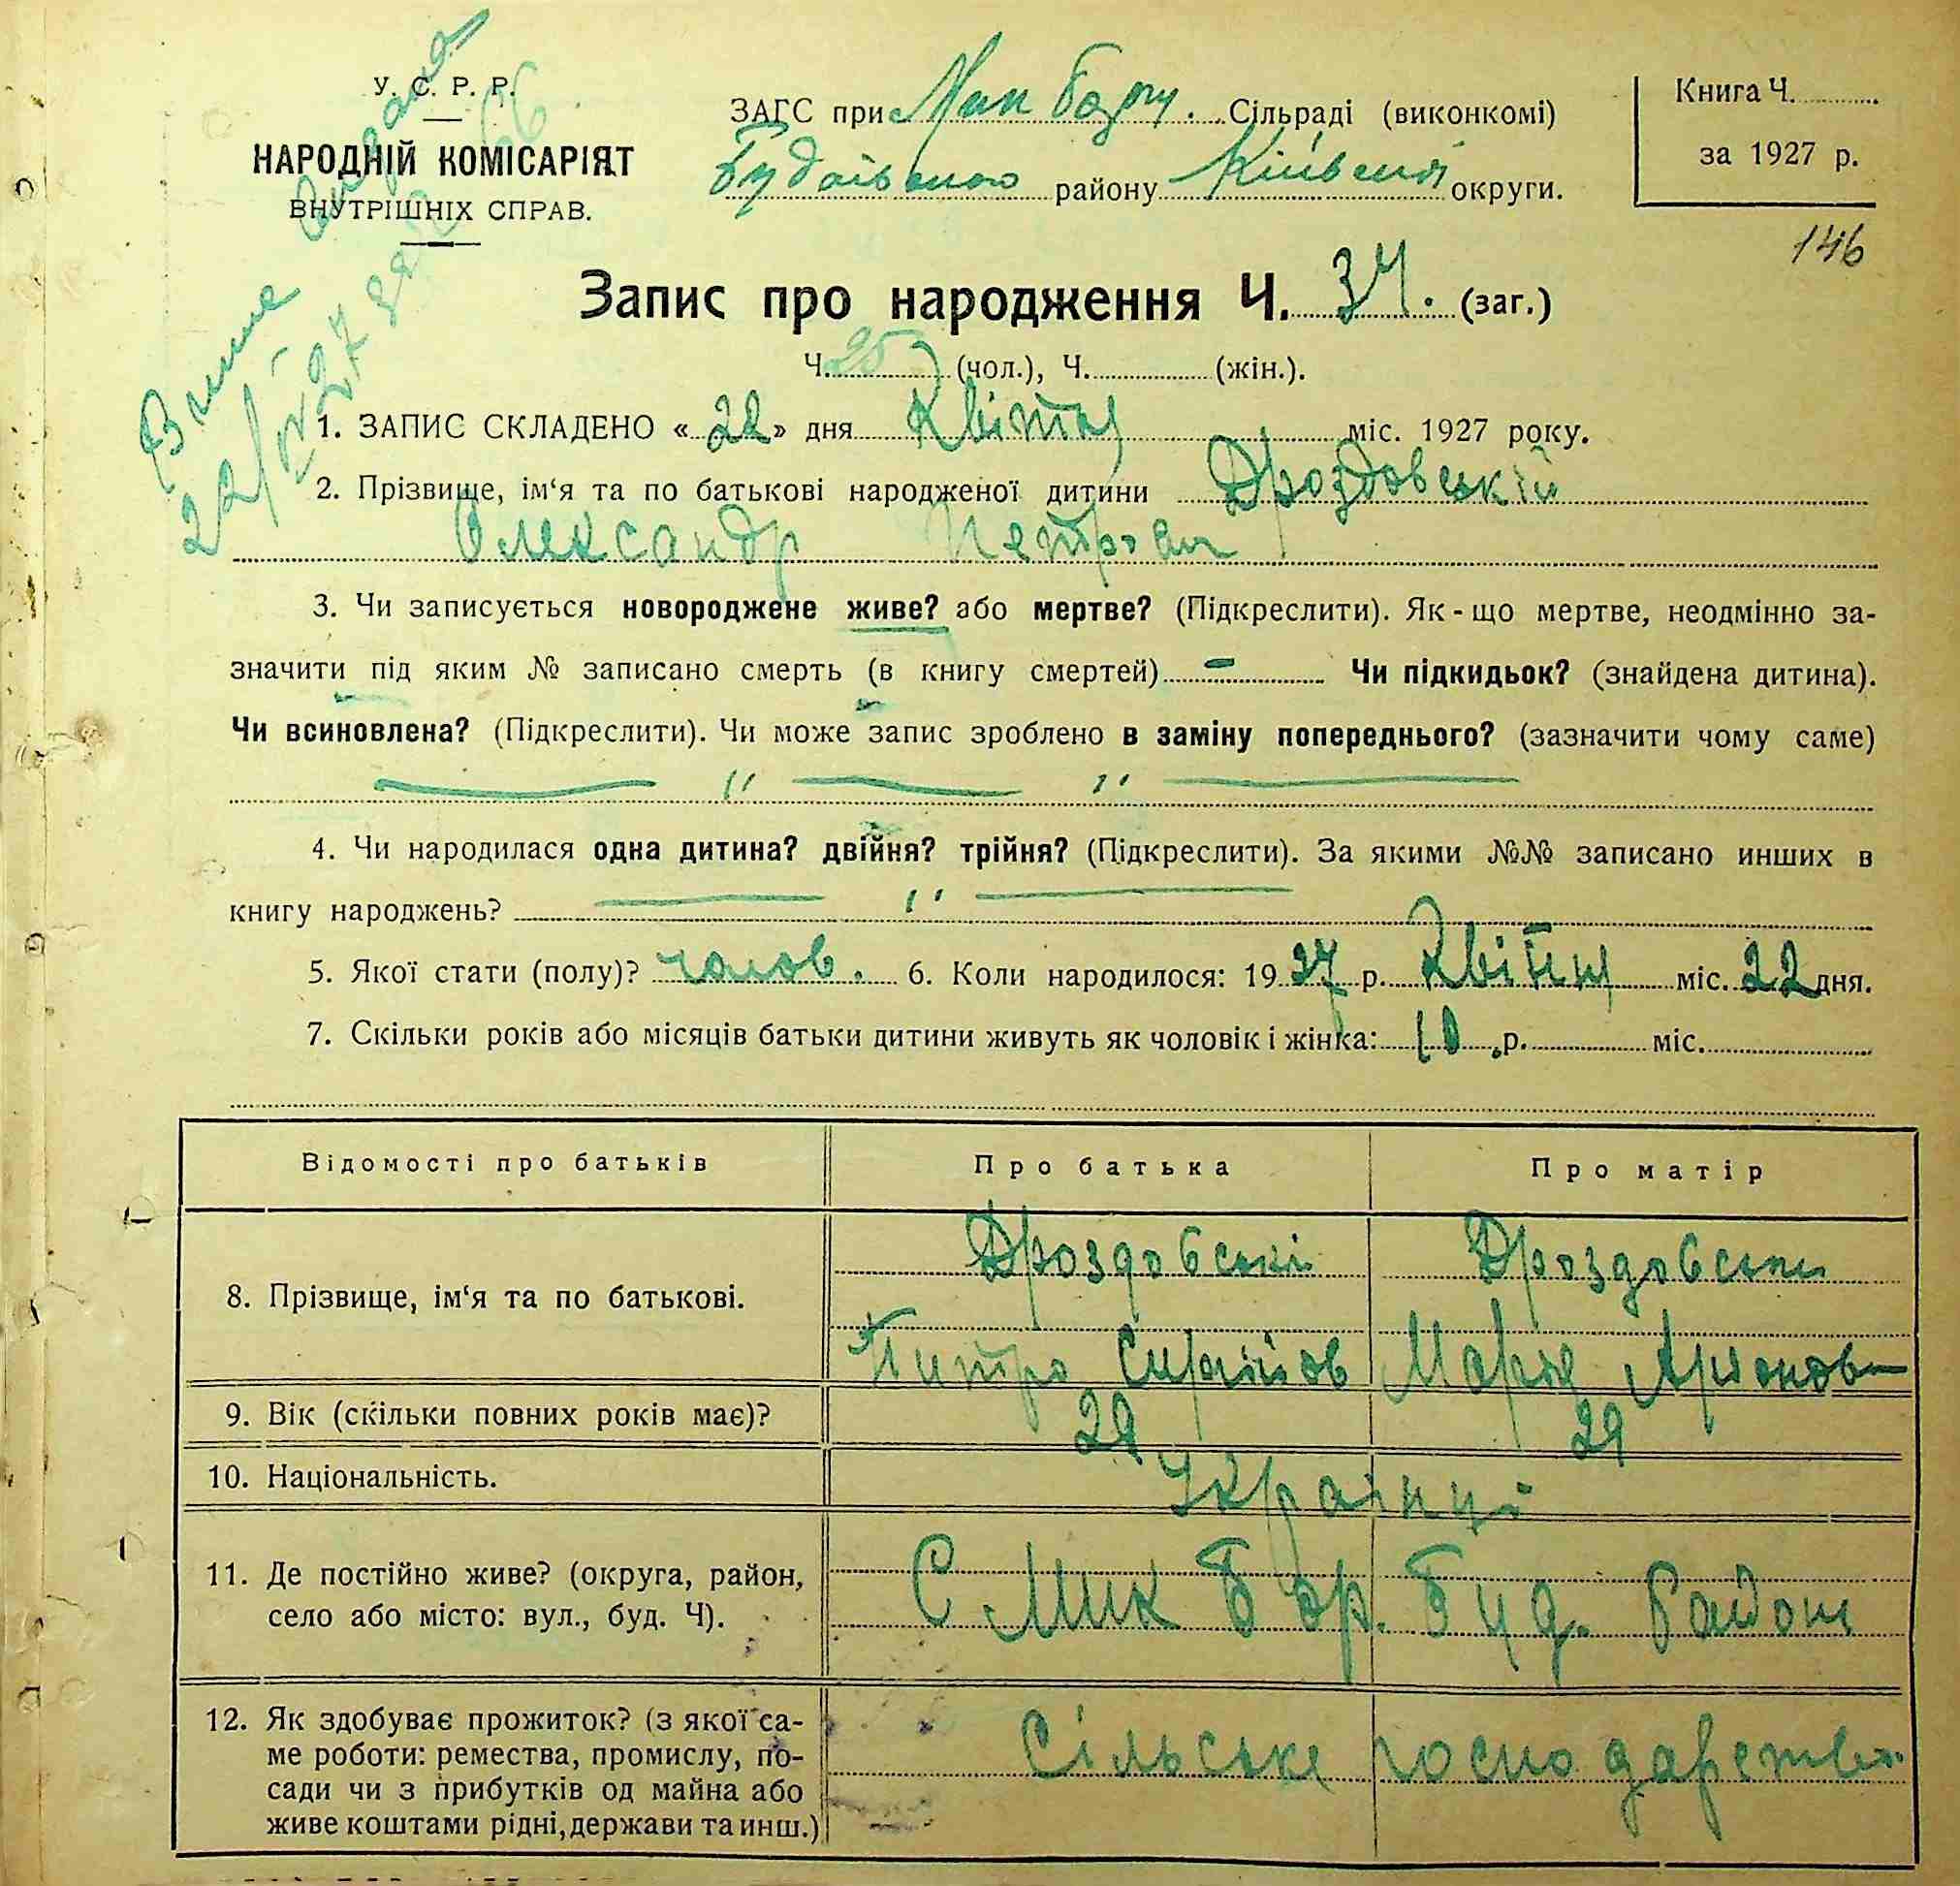 У. С. Р. Р.
НАРОДНІЙ КОМІСАРІЯТ
ВНУТРІШНІХ СПРАВ.
ЗАГС при Мик Борщ. Сільраді (виконкомі)
Будаівського району Київської округи.
Книга Ч.
за 1927 р.
146
Запис про народження Ч. 34. (заг.)
Ч. 25 (чол.), Ч. (жін.).
22/IV 27
1. ЗАПИС СКЛАДЕНО « 22 » дня Квітня міс. 1927 року.
2. Прізвище, ім‘я та по батькові народженої дитини Дроздовській
Олександр Петрович
3. Чи записується новороджене живе? або мертве? (Підкреслити). Як-що мертве, неодмінно за-
значити під яким № записано смерть (в книгу смертей) – Чи підкидьок? (знайдена дитина).
Чи всиновлена? (Підкреслити). Чи може запис зроблено в заміну попереднього? (зазначити чому саме)
— " — " —
4. Чи народилася одна дитина? двійня? трійня? (Підкреслити). За якими №№ записано инших в
книгу народжень? — " —
5. Якої стати (полу)? чолов. 6. Коли народилося: 1927 р. Квітня міс. 22 дня.
7. Скільки років або місяців батьки дитини живуть як чоловік і жінка: 10 р. міс.
Відомості про батьків Про батька Про матір
8. Прізвище, ім‘я та по батькові. Дроздовскі Дроздовськи
Питро Марія
9. Вік (скільки повних років має)? 29 29
10. Національність. Українці
11. Де постійно живе? (округа, район, село або місто: вул., буд. Ч). С Мик Бор. Буд. Район
12. Як здобуває прожиток? (з якої са-
ме роботи: ремества, промислу, по-
сади чи з прибутків од майна або
живе коштами рідні, держави та инш.) Сільське господарство